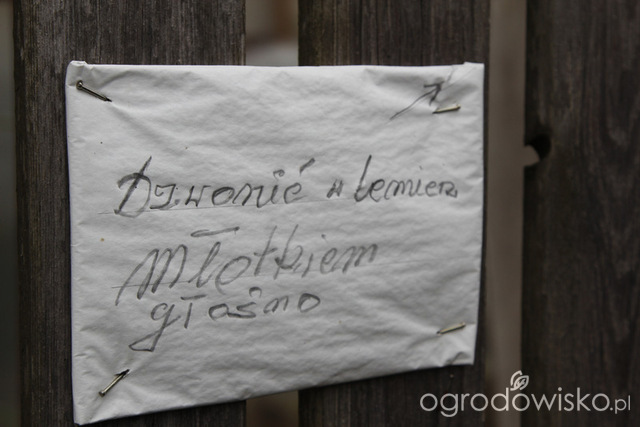 Dzwonić w lemiesz
młotkiem
głośno
ogrodowisko.pl